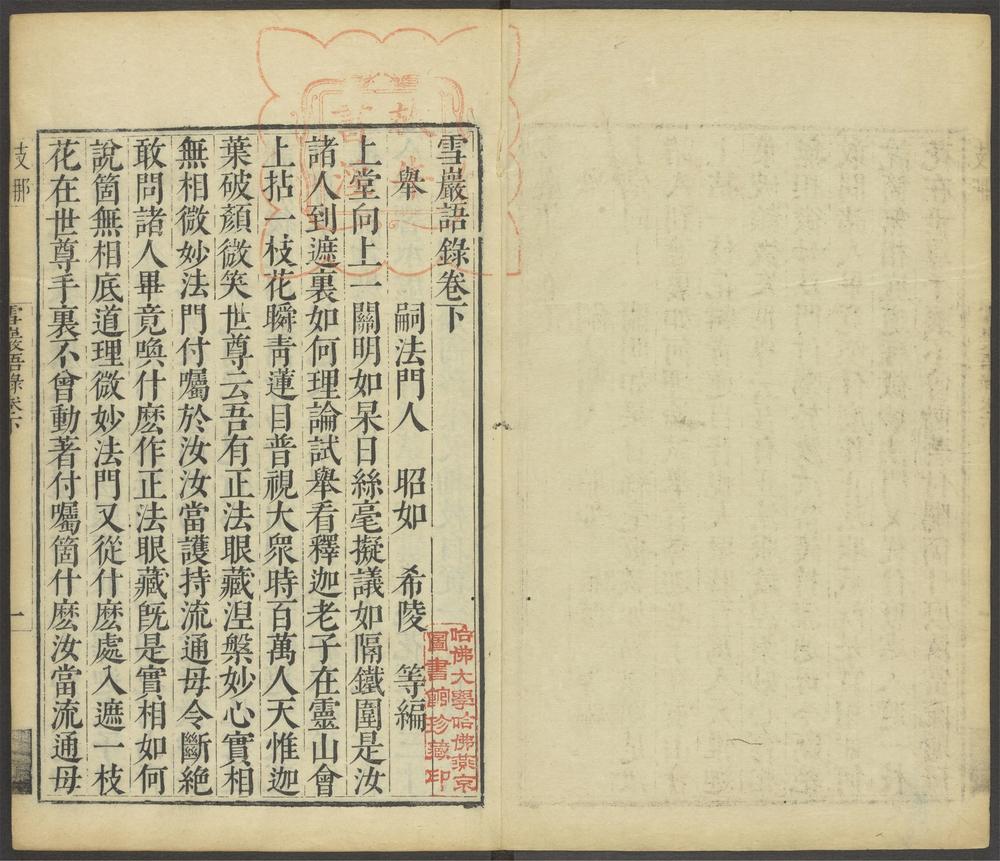 雪巖語錄卷下
嗣法門人 昭如 希陵 等編
舉
上堂向上一關明如杲日絲毫擬議如隔鐵圍是汝
諸人到遮裏如何理論試舉看釋迦老子在靈山會
上拈一枝花瞬青蓮目普視大衆時百萬人天惟迦
葉破顏微笑世尊云吾有正法眼藏涅槃妙心實相
無相微妙法門付囑於汝汝當護持流通毋令斷絕
敢問諸人畢竟喚什麽作正法眼藏旣是實相如何
說箇無相底道理微妙法門又從什麽處入遮一枝
花在世尊手裏不曾動著付囑箇什麽汝當流通毋
支那
雪巖語錄卷下
一
哈佛大學哈佛燕京
圖書館珍藏印